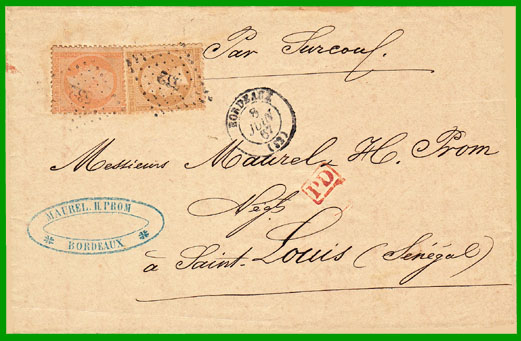 Par Surcouf
532
BORDEAUX
8
JUIN
67
(32)
Messieurs Maurel & H. Prom
PD
Negts
MAUREL. H. PROM
BORDEAUX
à Saint-Louis (Sénégal)